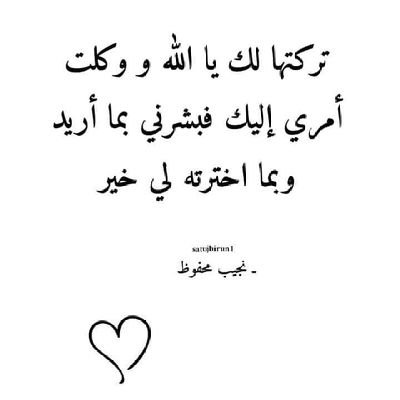 تركتها لك يا الله و وكلت
أمري إليك فبشرني بما أريد
وبما اخترته لي خير
satujbirun1
ـ نجيب محفوظ